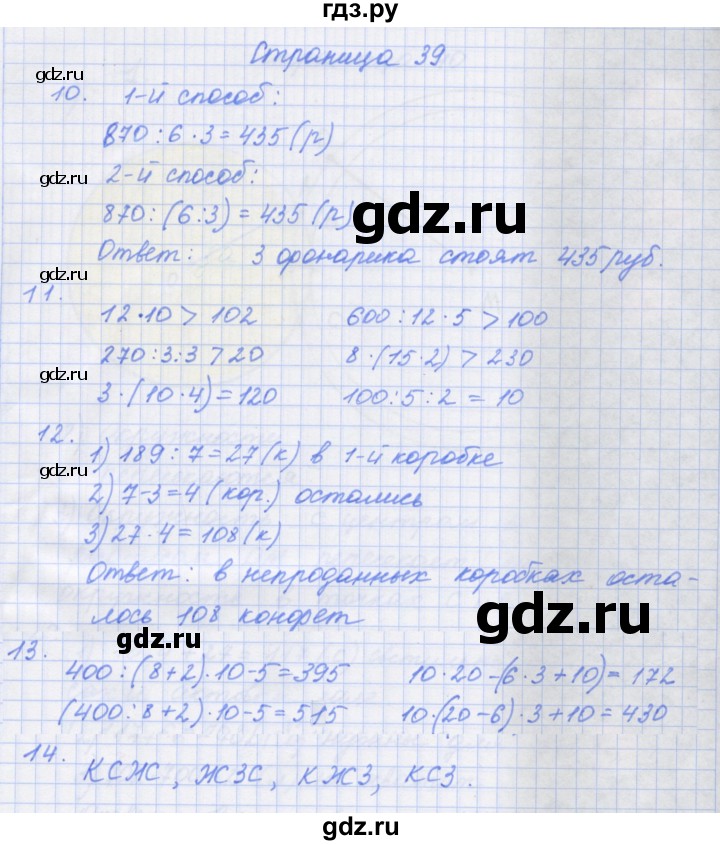 гдз.ру
Страница 39
gdz.ru
10. 1-й способ:
870 : 6 · 3 = 435 (р)
gdz.ru
2-й способ:
870 : (6 : 3) = 435 (р)
gdz.ru
Ответ: 3 фонарика стоят 435 руб.
gdz.ru
11.
12 · 10 > 102 600 : 12 · 5 > 100
270 : 3 : 3 > 20 8 · (15 · 2) > 230
gdz.ru
3 · (10 · 4) = 120 100 : 5 : 2 = 10
12.
1) 189 : 7 = 27 (к) в 1-й коробке
gdz.ru
2) 7 - 3 = 4 (кор.) остались
3) 27 · 4 = 108 (к)
gdz.ru
Ответ: в непроданных коробках оста-
лось 108 конфет
gdz.ru
gdz.ru
13.
400 : (8 + 2) · 10 - 5 = 395 10 · 20 - (6 · 3 + 10) = 172
(400 : 8 + 2) · 10 - 5 = 515 10 · (20 - 6) · 3 + 10 = 430
14.
gdz.ru
КСЖС, ЖЗС, КЖЗ, КСЗ.
gdz.ru
gdz.ru